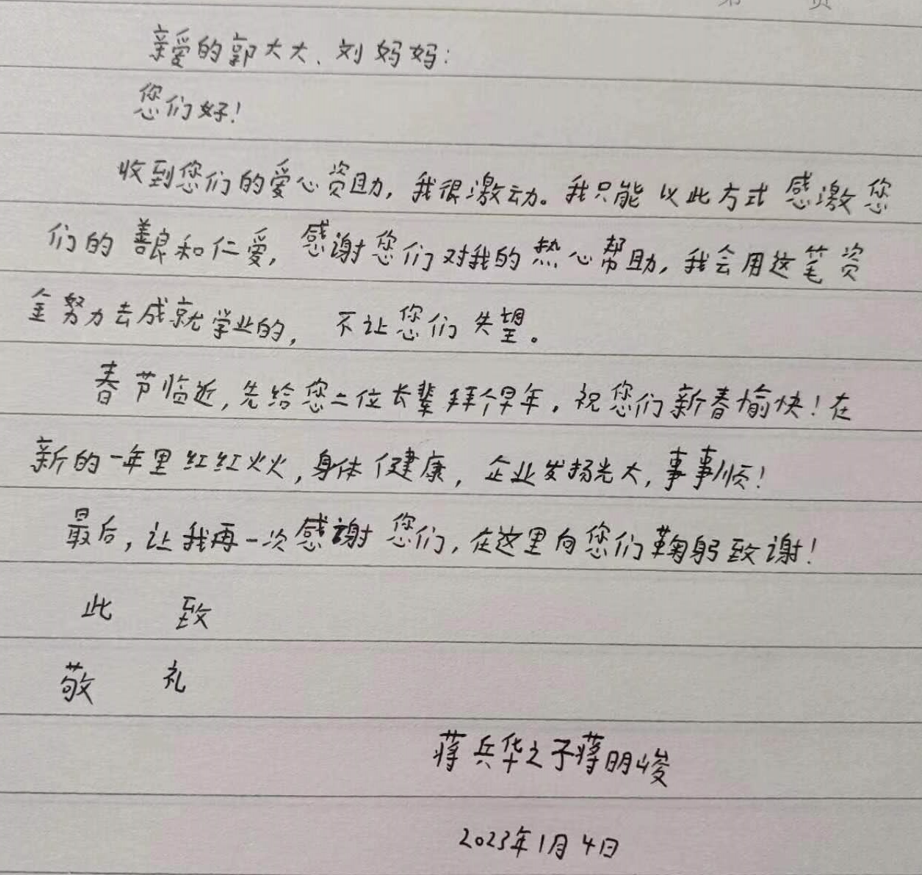 第 页
亲爱的郭大大、刘妈妈：
您们好！
收到您们的爱心资助，我很激动。我只能以此方式感激您
们的善良和仁爱，感谢您们对我的热心帮助，我会用这笔资
金努力去成就学业的，不让您们失望。
春节临近，先给您二位长辈拜个早年，祝您们新春愉快！在
新的一年里红红火火，身体健康，企业发扬光大，事事顺！
最后，让我再一次感谢您们，在这里向您们鞠躬致谢！
此 致
敬 礼
蒋兵华之子蒋明峻
2023年1月4日